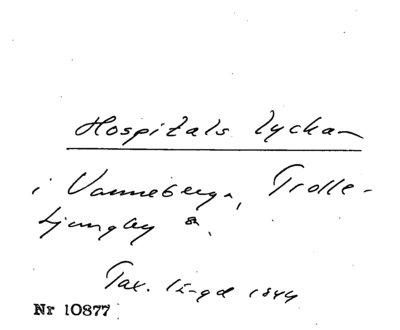 Hospitals lyckan
i Vanneberga, Trolle-
Ljungby sn.
Tax. längd 1844
Nr 10877